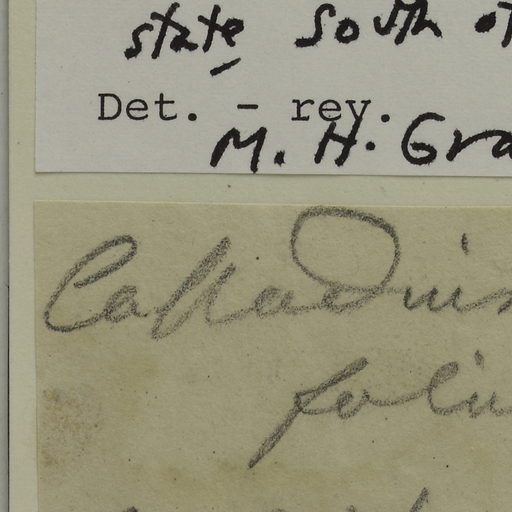 state South of
Det. - rev.
M. H. Gra
Calladium
foliu